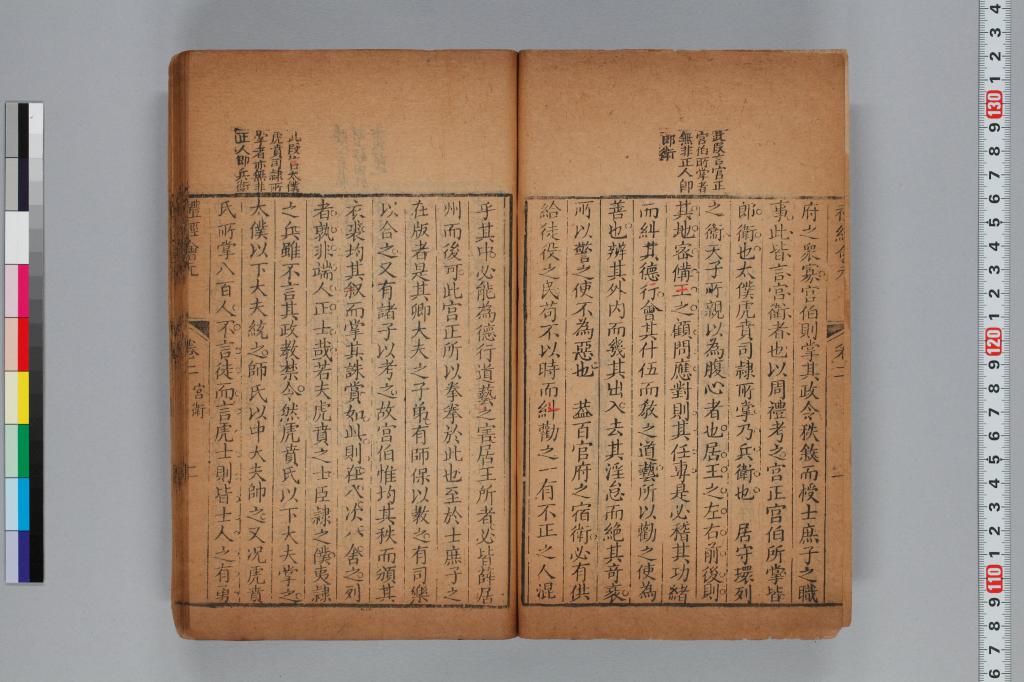 此段言宮正
宮伯所掌者
無非正人即
郎衛
府之衆寡宮伯則掌其政令秩敘而授士庶子之職
事此皆言宮衛者也以周禮考之宮正宮伯所掌皆
郎衛也太僕虎賁司隷所掌乃兵衛也 居守環列
之衛天子所親以為腹心者也居王之左右前後則
其地容備王之顧問應對則其任專是必稽其功緒
而糾其德行會其什伍而教之道藝所以勸之使為
善也辨其外内而幾其出入去其淫怠而絶其竒衺
所以警之使不為惡也 葢百官府之宿衛必有供
給徒役之民苟不以時而糾勸之一有不正之人混
此段言太僕
虎賁司隷所
掌者亦無非
正人即兵衛
乎其中必能為德行道藝之害居王所者必皆薛居
州而後可此宮正所以拳拳於此也至於士庶子之
在版者是其卿大夫之子弟有師保以教之有司樂
以合之又有諸子以考之故宮伯惟均其秩而頒其
衣裘均其叙而掌其誅賞如此則在八次八舍之列
者孰非端人正士哉若夫虎賁之士臣隷之僕夷隷
之兵雖不言其政教禁令然虎賁氏以下大夫掌之
太僕以下大夫統之師氏以中大夫帥之又况虎賁
氏所掌八百人不言徒而言虎士則皆士人之有勇
禮經會元
卷二
宮衛